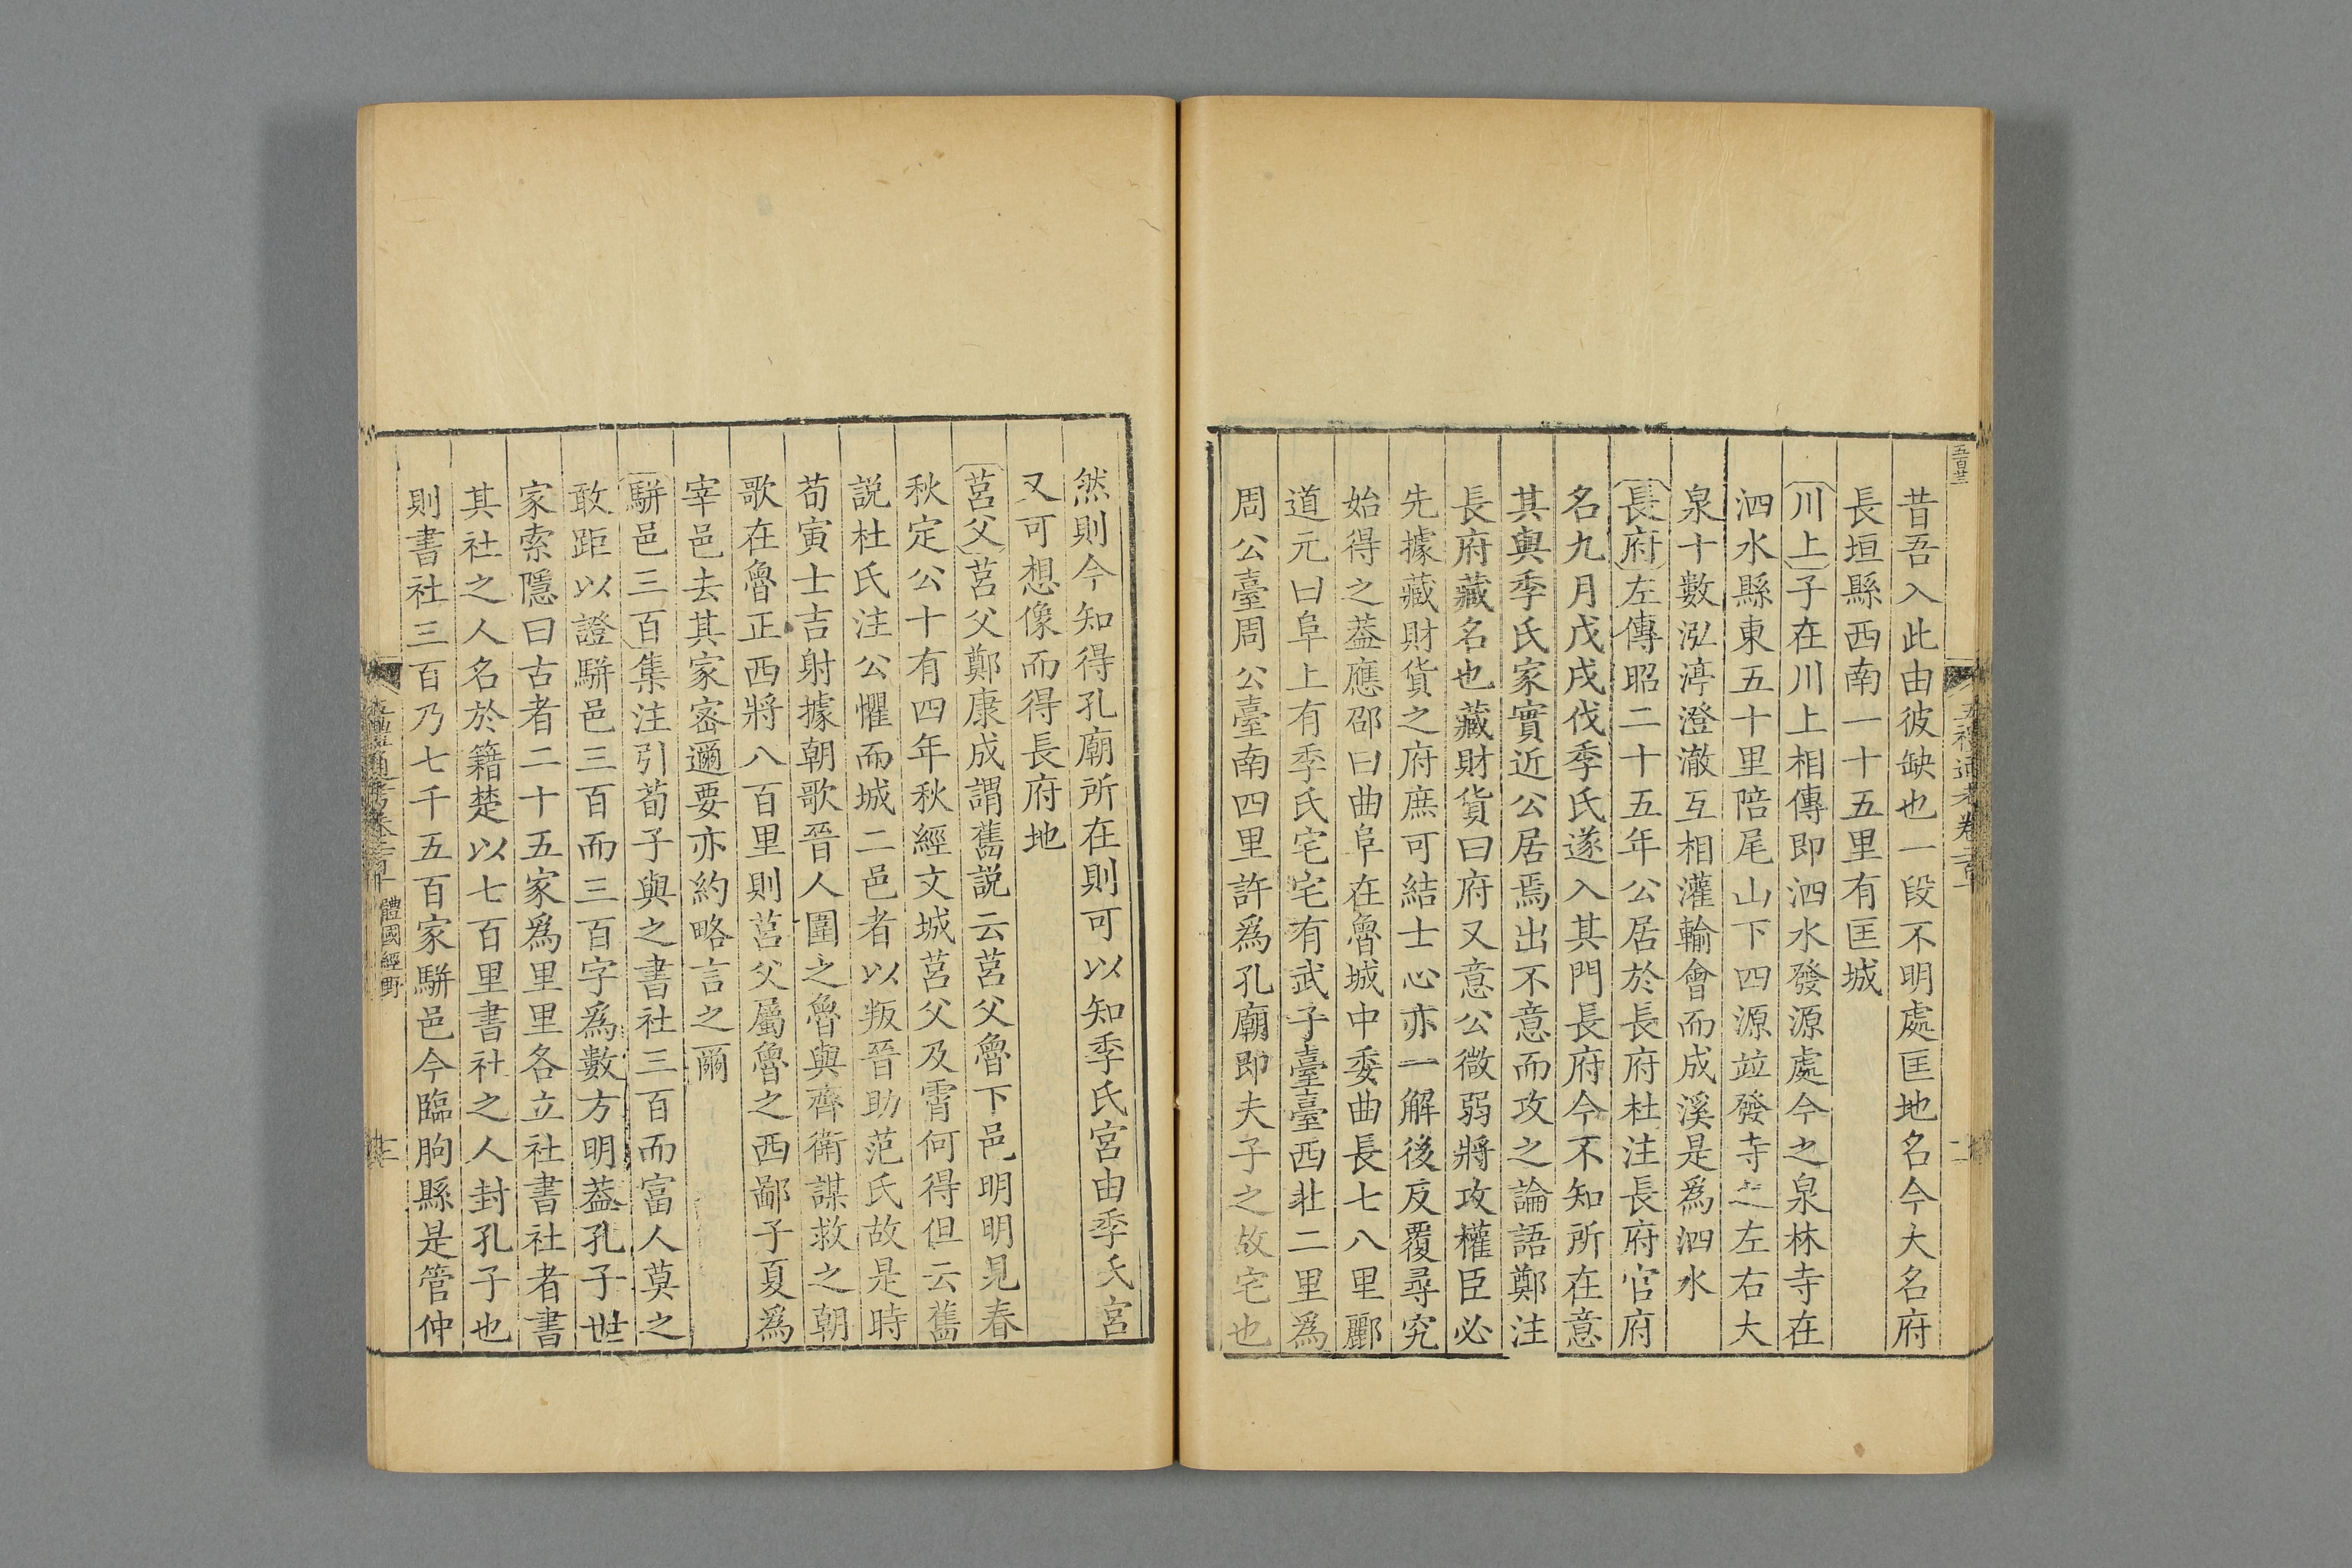 昔吾入此由彼缺也一段不明處匡地名今大名府
長垣縣西南一十五里有匡城
川上子在川上相傳即泗水發源處今之泉林寺在
泗水縣東五十里陪尾山下四源竝發寺之左右大
泉十數泓渟澄澈互相灌輸會而成溪是爲泗水
長府左傳昭二十五年公居於長府杜注長府官府
名九月戊戌伐季氏遂入其門長府今不知所在意
其與季氏家實近公居焉出不意而攻之論語鄭注
長府藏名也藏財貨曰府又意公微弱將攻權臣必
先據藏財貨之府庶可結士心亦一解後反覆尋究
始得之葢應邵曰曲阜在魯城中委曲長七八里酈
道元曰阜上有季氏宅宅有武子臺臺西北二里爲
周公臺周公臺南四里許爲孔廟即夫子之故宅也
然則今知得孔廟所在則可以知季氏宮由季氏宮
又可想像而得長府地
莒父莒父鄭康成謂舊説云莒父魯下邑明明見春
秋定公十有四年秋經文城莒父及霄何得但云舊
説杜氏注公懼而城二邑者以叛晉助范氏故是時
荀寅士吉射據朝歌晉人圍之魯與齊衛謀救之朝
歌在魯正西將八百里則莒父屬魯之西鄙子夏爲
宰邑去其家密邇要亦約略言之爾
駢邑三百集注引荀子與之書社三百而富人莫之
敢距以證駢邑三百而三百字爲數方明葢孔子世
家索隱曰古者二十五家爲里里各立社書社者書
其社之人名於籍楚以七百里書社之人封孔子也
則書社三百乃七千五百家駢邑今臨朐縣是管仲
體國經野